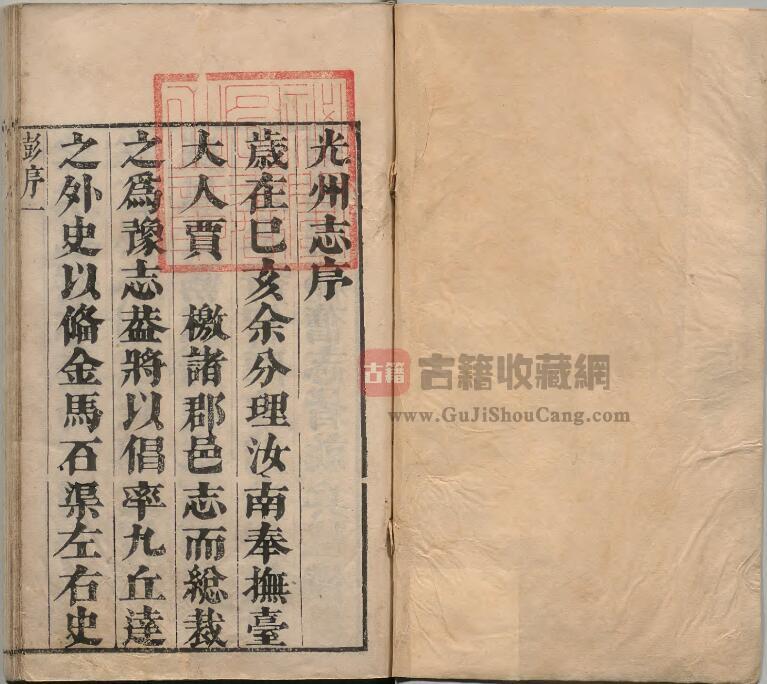 光州志序
歲在巳亥余分理汝南奉撫臺
大人賈　檄諸郡邑志而總裁
之爲豫志葢將以倡率九丘達
之外史以俻金馬石渠左右史
彭序一
古籍
古籍收藏網
www.GuJiShouCang.com